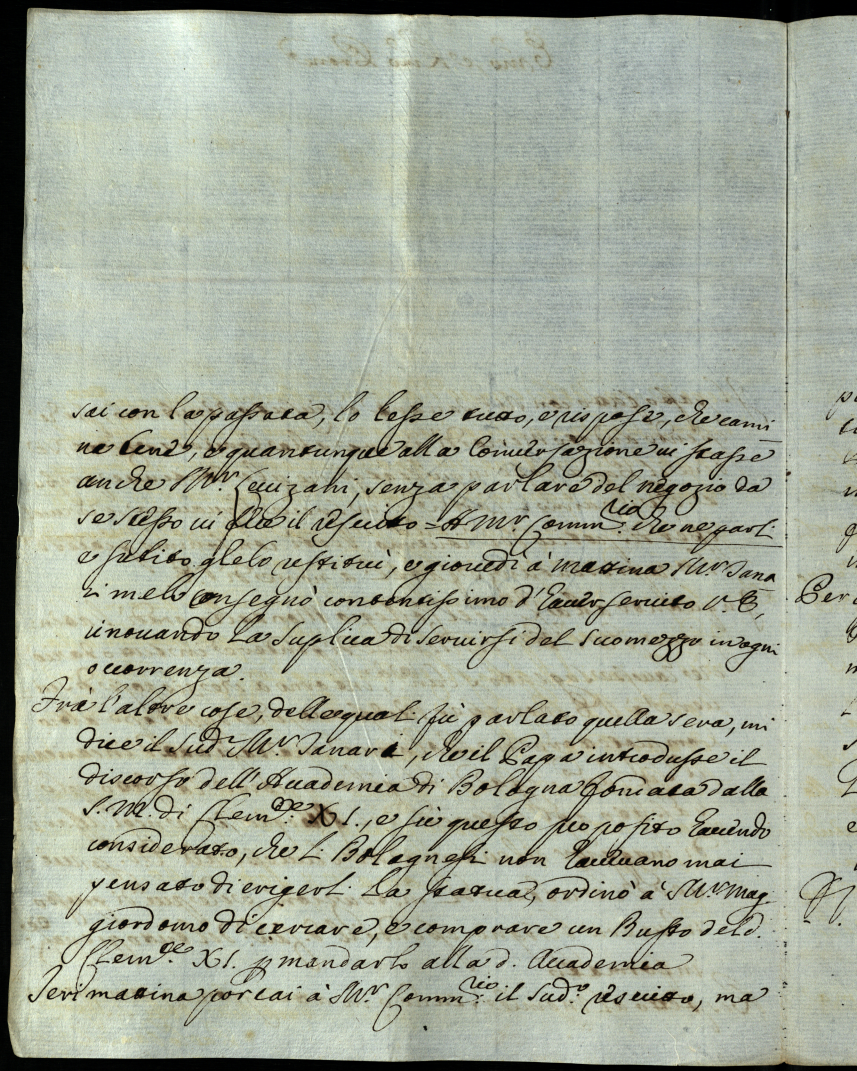 sai con la passata, lo lesse tutto, e rispose, che cami
na bene, e quantunque alla Conversazione vi stasse
anche Mr. senza parlare del negozio da
se stesso vi il rescritto = A Mr. Comm.rio che ne parli
e subito glelo restituì, e giovedì à mattina Mr. Jana
ri me lo consegnò contentissimo d'haver servito V. E.,
rinovando la suplica di servirsi del suo mezzo in ogni
occorrenza.
Frà l'altre cose, delle quali fù parlato quella sera, mi
dice il sud.o Mr. Janari, che il Papa introdusse il
discorso dell'Accademia di Bologna fondata dalla
S. M. di Clem.te XI., e sù questo proposito havendo
considerato, che li Bolognesi non havevano mai
pensato di erigerli la statua, ordinò à Mr. Mag-
giordomo di cercare, e comprare un Busto del d.
Clem.te XI. p mandarlo alla d. Accademia
Jeri mattina portai à Mr. Comm.rio il sud.o rescritto, ma